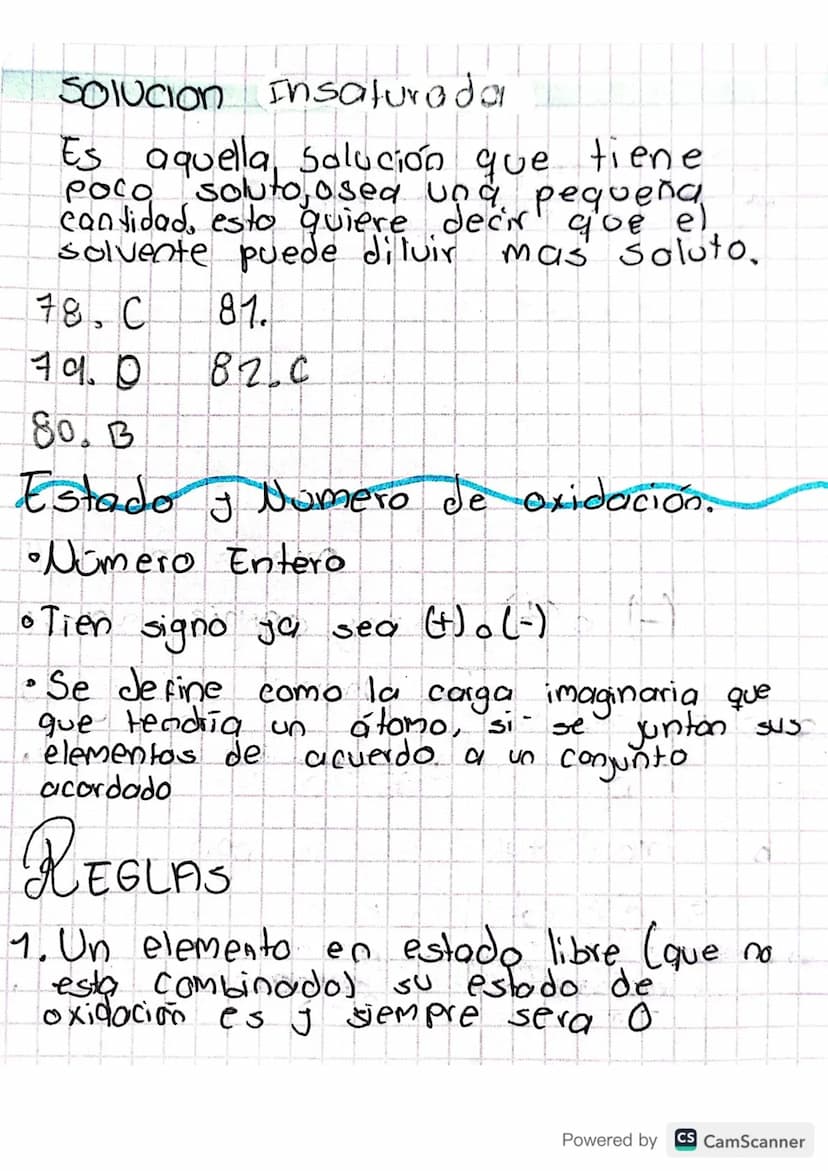 SOlUCION Insaturada
Es aquella, Solución que tiene
poco soluto, osea una pequeña
cantidad, esto quiere decir que el
solvente puede diluir mas soluto.
78. C 81.
79. D 82. C
80. B
Estado y Número de oxidación.
• Número Entero
• Tien signo ya sea (+) o (-)
• Se define como la carga imaginaria que
que tendría un átomo, si se juntan sus
elementos de acuerdo a un conjunto
acordado
REGLAS
1. Un elemento en estado libre (que no
esta combinado) su estado de
oxidación es y siempre sera 0
Powered by CS CamScanner